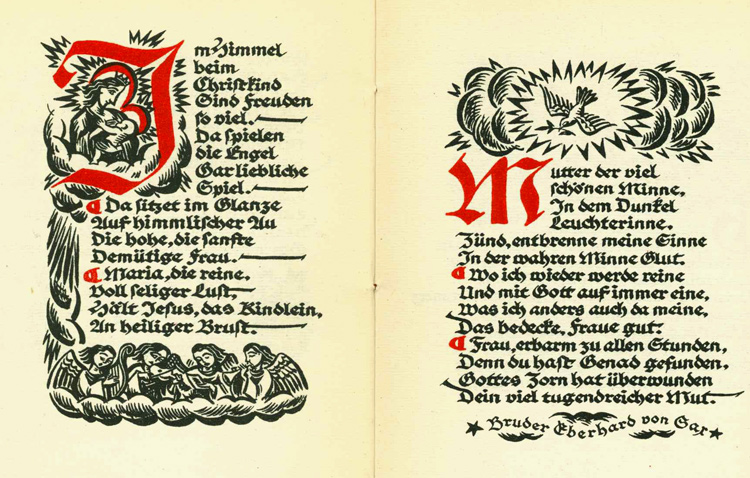 Im Himmel
beim
Christkind
Sind Freuden
so viel.
Da spielen
die Engel
Gar liebliche
Spiel.
Da sitzet im Glanze
Auf himmlischer Au
Die hohe, die sanfte
Demütige Frau.
Maria, die reine.
Voll seliger Lust,
Hält Jesus, das Kindlein,
An heiliger Brust.
Mutter der viel
schönen Minne,
In dem Dunkel
Leuchterinne.
Zünd, entbrenne meine Sinne
In der wahren Minne Glut.
Wo ich wieder werde reine
Und mit Gott auf immer eine,
Was ich anders auch da meine,
Das bedecke, Fraue gut.
Frau, erbarm zu allen Stunden,
Denn du hast Genad gefunden,
Gottes Zorn hat überwunden
Dein viel tugendreicher Mut.
Bruder Eberhard von Sax